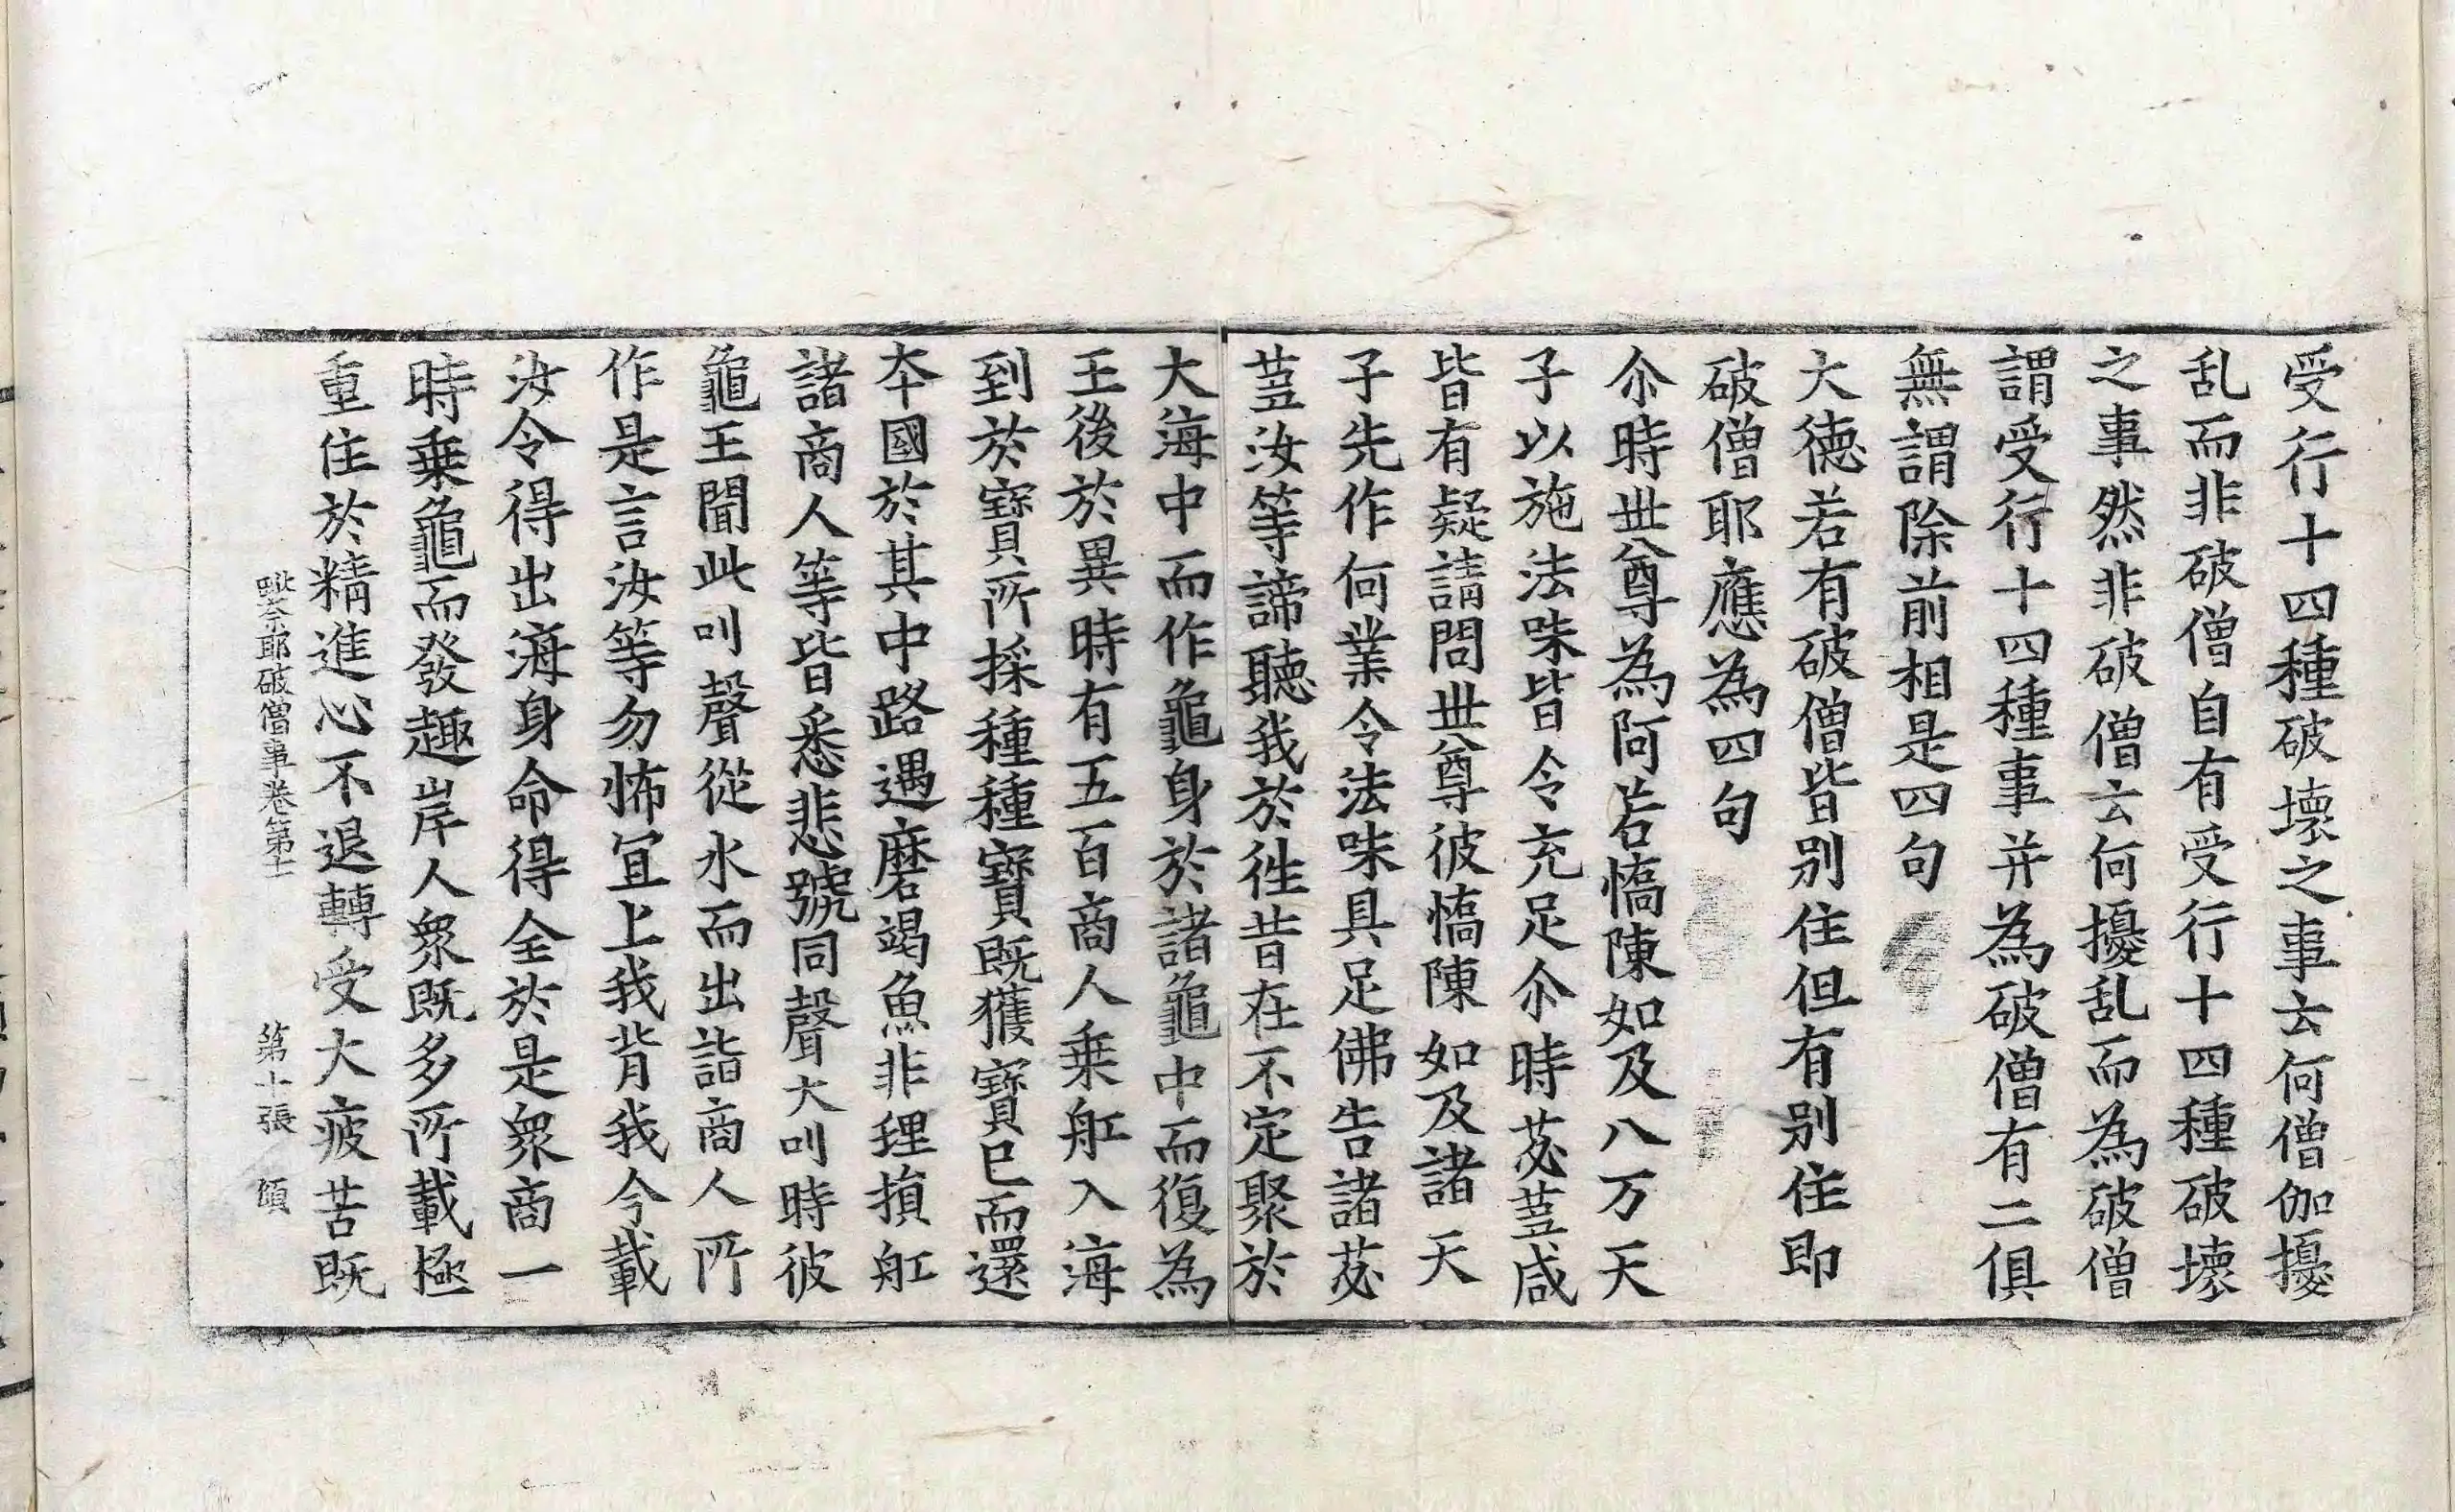 受行十四種破壞之事云何僧伽擾
乱而非破僧自有受行十四種破壞
之事然非破僧云何擾乱而為破僧
謂受行十四種事并為破僧有二俱
無謂除前相是四句
大德若有破僧皆别住但有别住即
破僧耶應為四句
尒時世尊為阿若憍陳如及八万天
子以施法味皆令充足尒時苾蒭咸
皆有疑請問世尊彼憍陳如及諸天
子先作何業令法味具足佛告諸苾
蒭汝等諦聽我於徃昔在不定聚於
大海中而作龜身於諸龜中而復為
王後於異時有五百商人乗舡入海
到於寶所採種種寶既獲寶已而還
夲國於其中路遇磨竭魚非理損舡
諸商人等皆悉悲號同聲大叫時彼
龜王聞此叫聲從水而出詣商人所
作是言汝等勿怖冝上我背我今載
汝令得出海身命得全於是衆商一
時乗龜而發趣岸人衆既多所載極
重住於精進心不退轉受大疲苦既
毗奈耶破僧事卷第十一　第十張